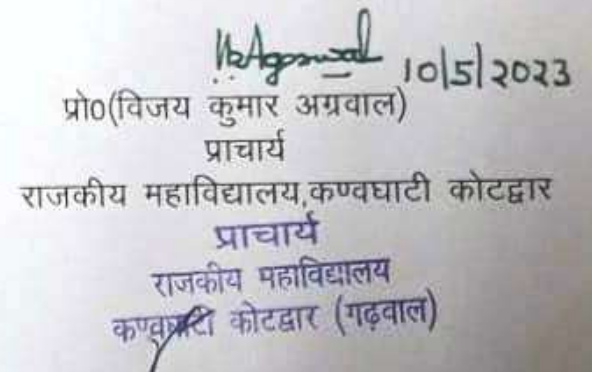 VkAgarwal 10/5/2023
प्रो0(विजय कुमार अग्रवाल)
प्राचार्य
राजकीय महाविद्यालय,कण्वघाटी कोटद्वार
प्राचार्य
राजकीय महाविद्यालय
कण्वघाटी कोटद्वार (गढ़वाल)